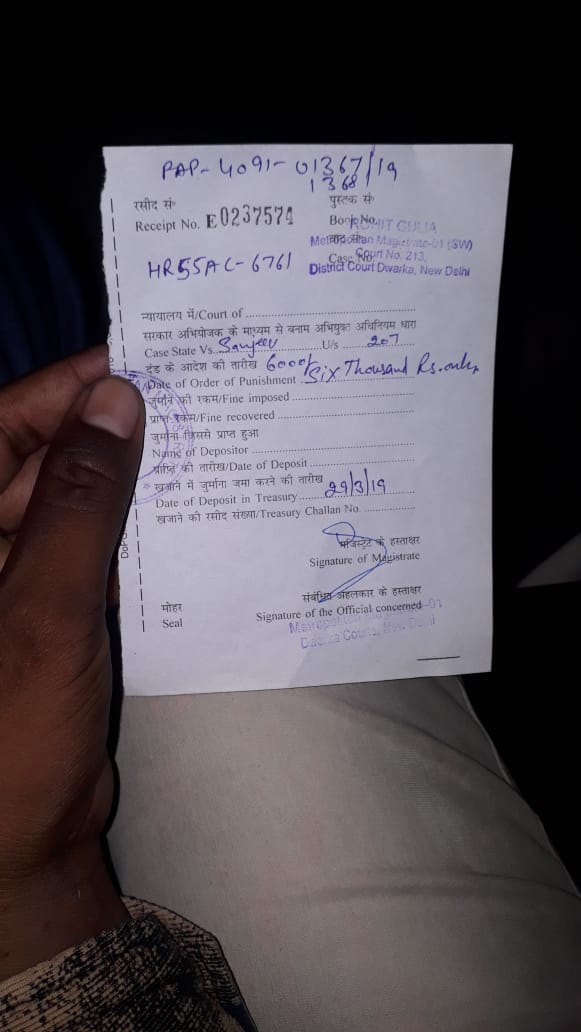 PAP-4091-01367/19
1368
रसीद सं॰ पुस्तक सं॰
Receipt No. E0237574 Book No.
ROHIT GULIA
Metropolitan Magistrate-01 (SW)
Case No. Court No. 213,
HR55AC-6761 District Court Dwarka, New Delhi
न्यायालय में/Court of
सरकार अभियोजक के माध्यम से बनाम अभियुक्त अधिनियम धारा
Case State Vs. Sanjeev U/s 207
दंड के आदेश की तारीख 6000/-
Date of Order of Punishment Six Thousand Rs. only
जुर्माने की रकम/Fine imposed
प्राप्त रकम/Fine recovered
जुर्माना जिससे प्राप्त हुआ
Name of Depositor
प्राप्ति की तारीख/Date of Deposit
खजाने में जुर्माना जमा करने की तारीख
Date of Deposit in Treasury 29/3/19
खजाने की रसीद संख्या/Treasury Challan No.
मजिस्ट्रेट के हस्ताक्षर
Signature of Magistrate
मोहर संबंधित अहलकार के हस्ताक्षर
Seal Signature of the Official concerned
Metropolitan -01
Dwarka Courts, New Delhi